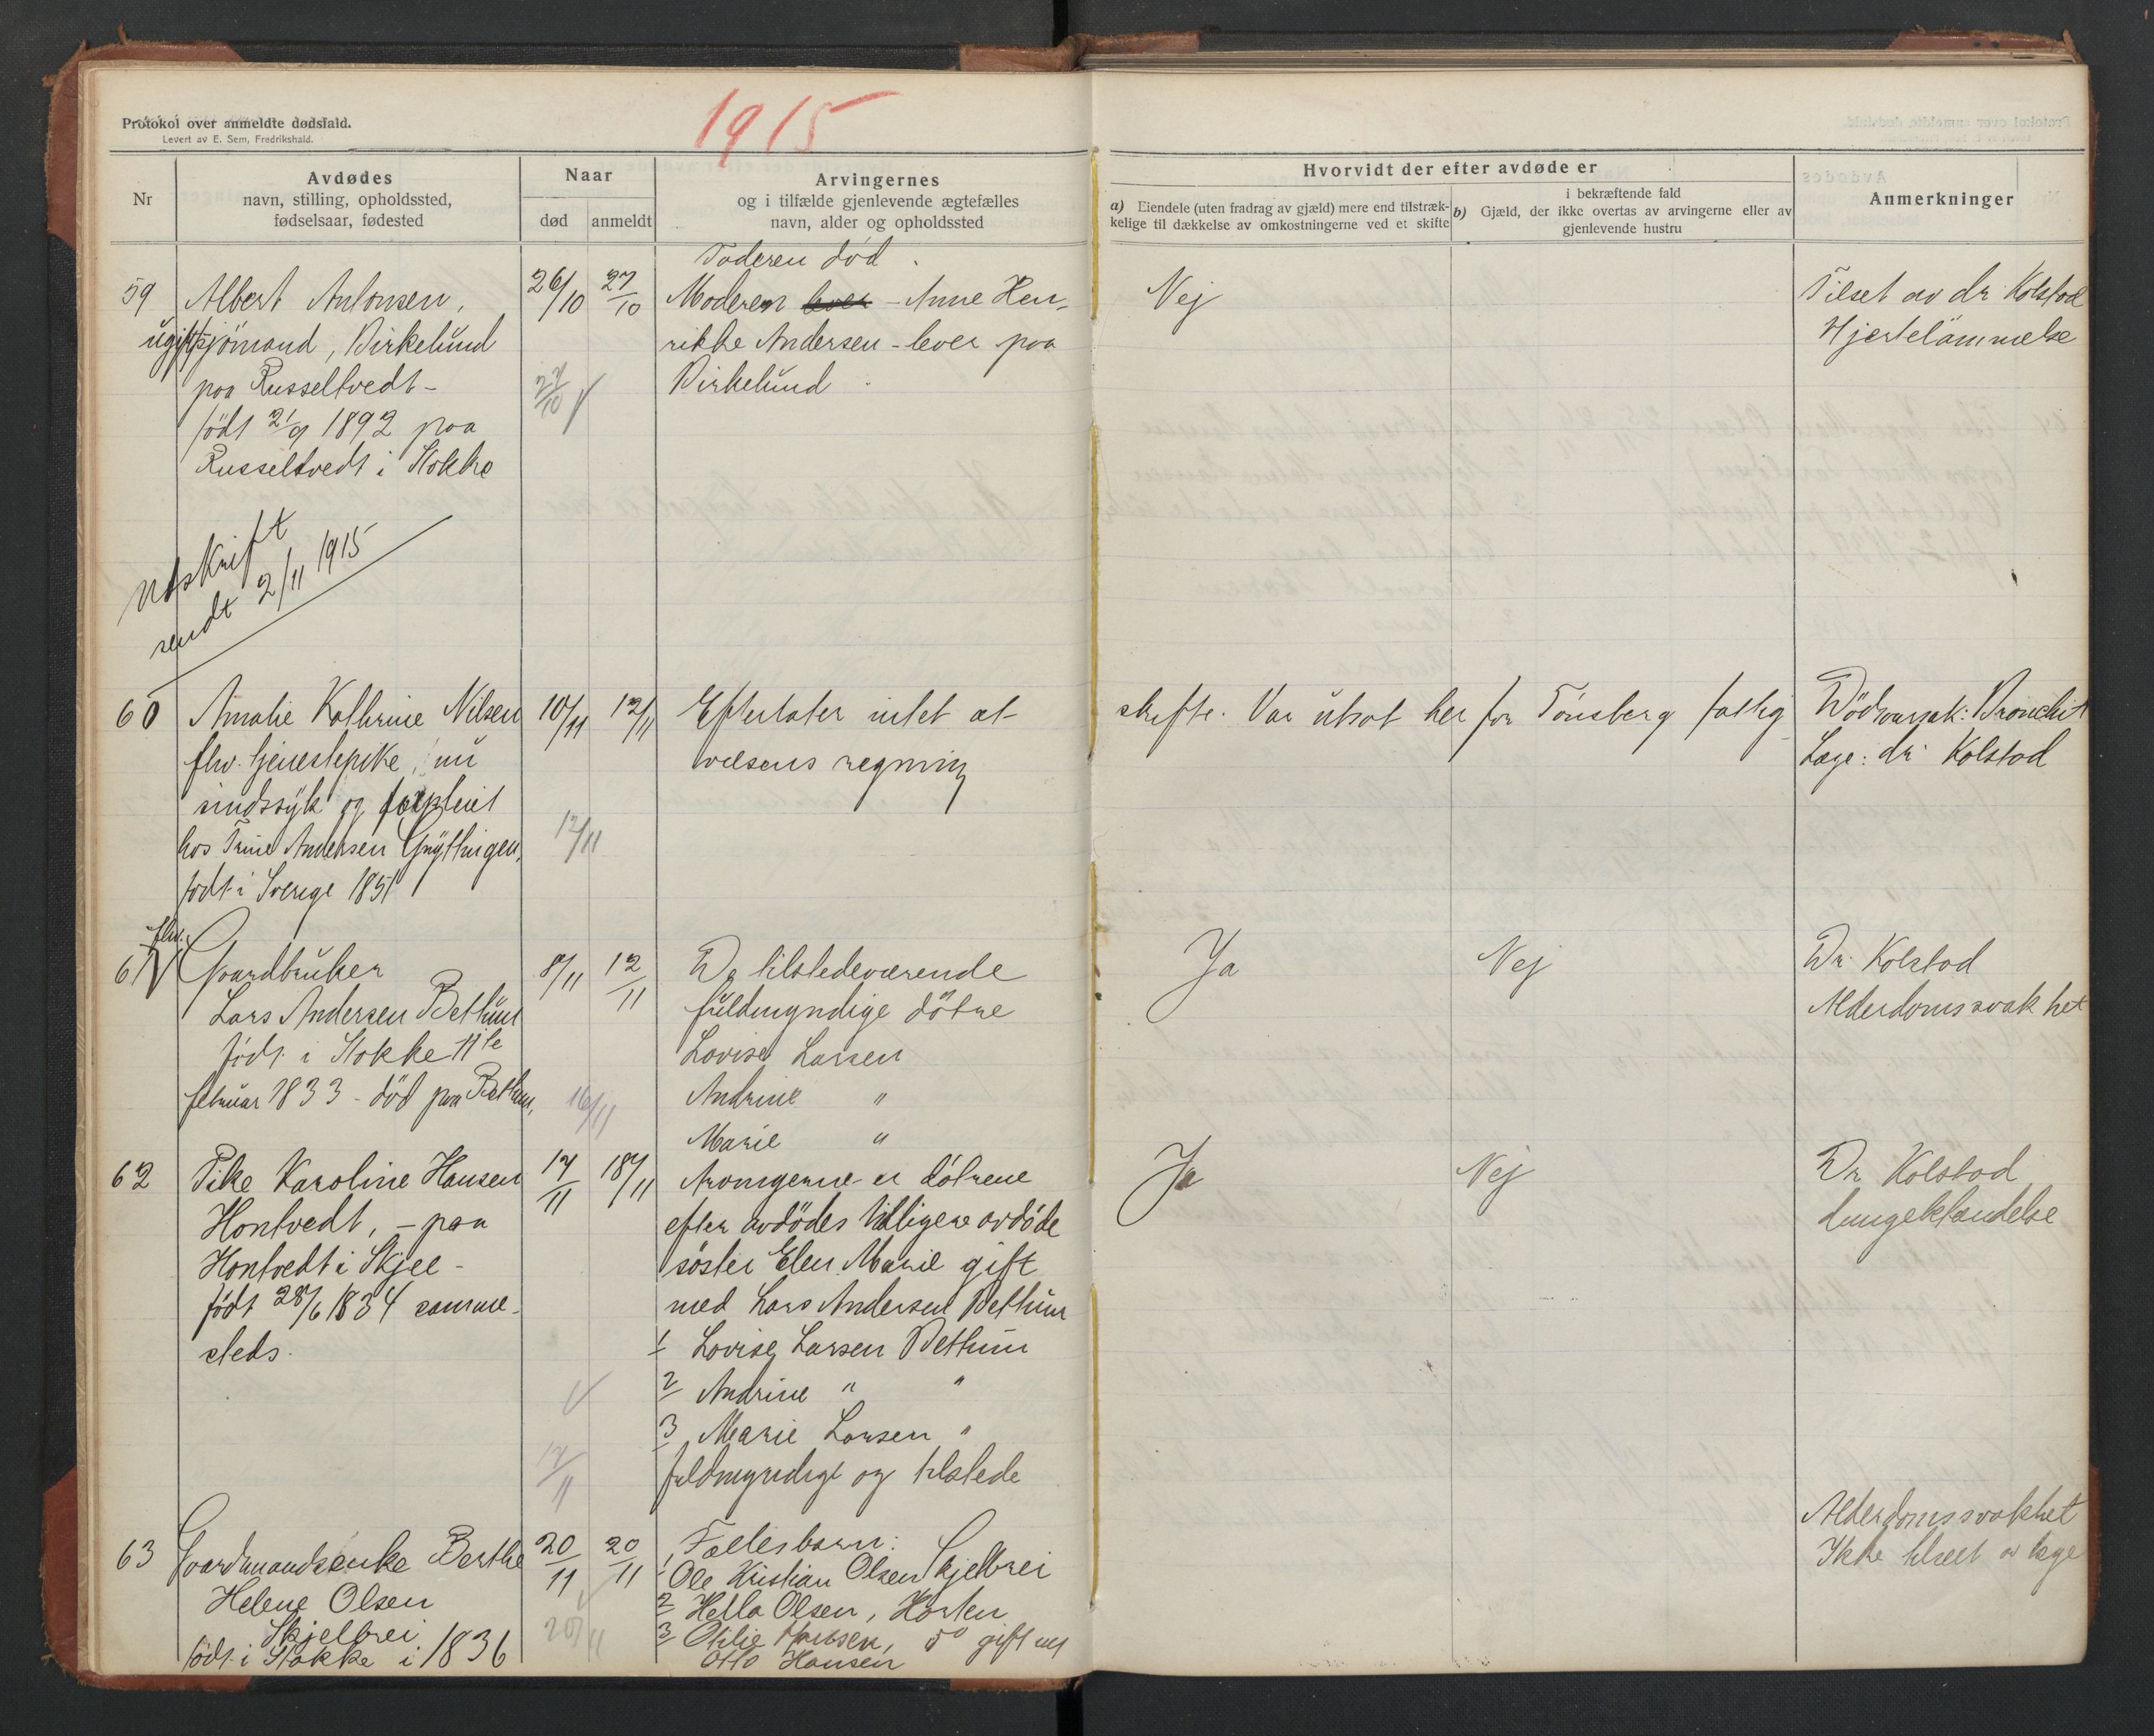 Protokol over anmeldte dødsfald.
Levert av E. Sem, Fredrikshald.
1915
Nr
Avdødes
navn, stilling, opholdssted,
fødselsaar, fødested
Naar
død
anmeldt
Arvingernes
og i tilfælde gjenlevende ægtefælles
navn, alder og opholdssted
Hvorvidt der efter avdøde er
a) Eiendele (uten fradrag av gjæld) mere end tilstræk-
kelige til dækkelse av omkostningerne ved et skifte
i bekræftende fald
b) Gjæld, der ikke overtas av arvingerne eller av
gjenlevende hustru
Anmerkninger
59
Albert Antonsen,
ugift sjömand, Birkelund
paa Russeltvedt -
födt 21/9 1892 paa
Russeltvedt i Stokke
26/10
27/10
27/10
Faderen död.
Moderen lever - Anne Hen-
rikke Andersen - lever paa
Birkelund.
Nej
Tilset av dr. Kolstad
Hjertelammelse
Utskrift
sendt 2/11 1915
60
Amalie Kathrine Nilsen
flv. tjenestepike, nu
sindssyk og forpleiet
hos Trine Andersen Gryttingen,
födt i Sverige 1851
10/11
12/11
12/11
Efterlater intet at skifte. Var utsat her for Tönsberg fattig-
vesens regning
Dödsaarsak: Bronchit
Læge: dr. Kolstad
61
flv.
Gaardbruker
Lars Andersen Bettum
födt i Stokke 11te
februar 1833 - död paa Bettum,
8/11
12/11
16/11
De tilstedeværende
fuldmyndige dötre
Lovise Larsen
Andrine "
Marie "
Ja
Nej
Dr. Kolstad
Alderdomssvakhet
62
Pike Karoline Hansen
Hontvedt, - paa
Hontvedt i Skjee -
födt 28/6 1834 samme-
steds.
17/11
18/11
17/11
Arvingerne er dötrene
efter avdödes tidligere avdöde
söster Elen Marie gift
med Lars Andersen Bettum
1 Lovise Larsen Bettum
2 Andrine " "
3 Marie Larsen "
fuldmyndige og tilstede
Ja
Nej
Dr. Kolstad
Lungebetændelse
63
Gaardmandsenke Berthe
Helene Olsen
Skjelbrei
födt i Stokke i 1836
20/11
20/11
20/11
Fællesbarn:
1 Ole Kristian Olsen Skjelbrei
2 Hella Olsen, Horten
3 Otilie Hansen, 50 gift m
Otto Hansen
Alderdomssvakhet
Ikke tilset av læge